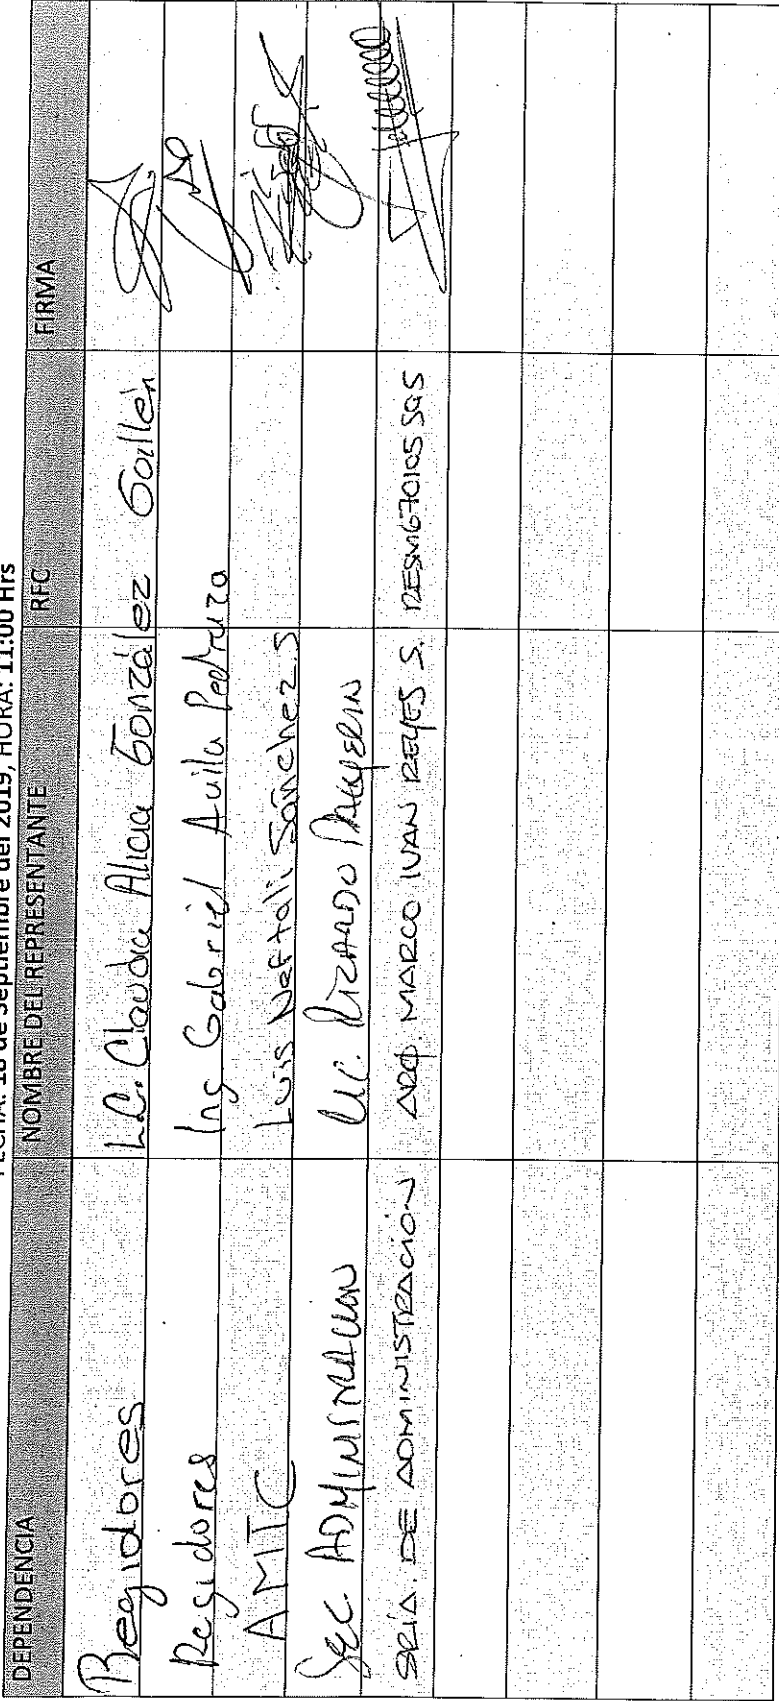 FECHA: 18 de Septiembre del 2019, HORA: 11:00 Hrs
DEPENDENCIA NOMBRE DEL REPRESENTANTE RFC FIRMA
Regidores L.C. Claudia Alicia González Guillén
Regidores Ing Gabriel Avila Pedraza
AMIC Luis Neftali Sánchez S
Sec. ADMINISTRACION LIC. RIZARDO
SRÍA. DE ADMINISTRACIÓN ARQ. MARCO IVAN REYES S. RESM670105SQ5